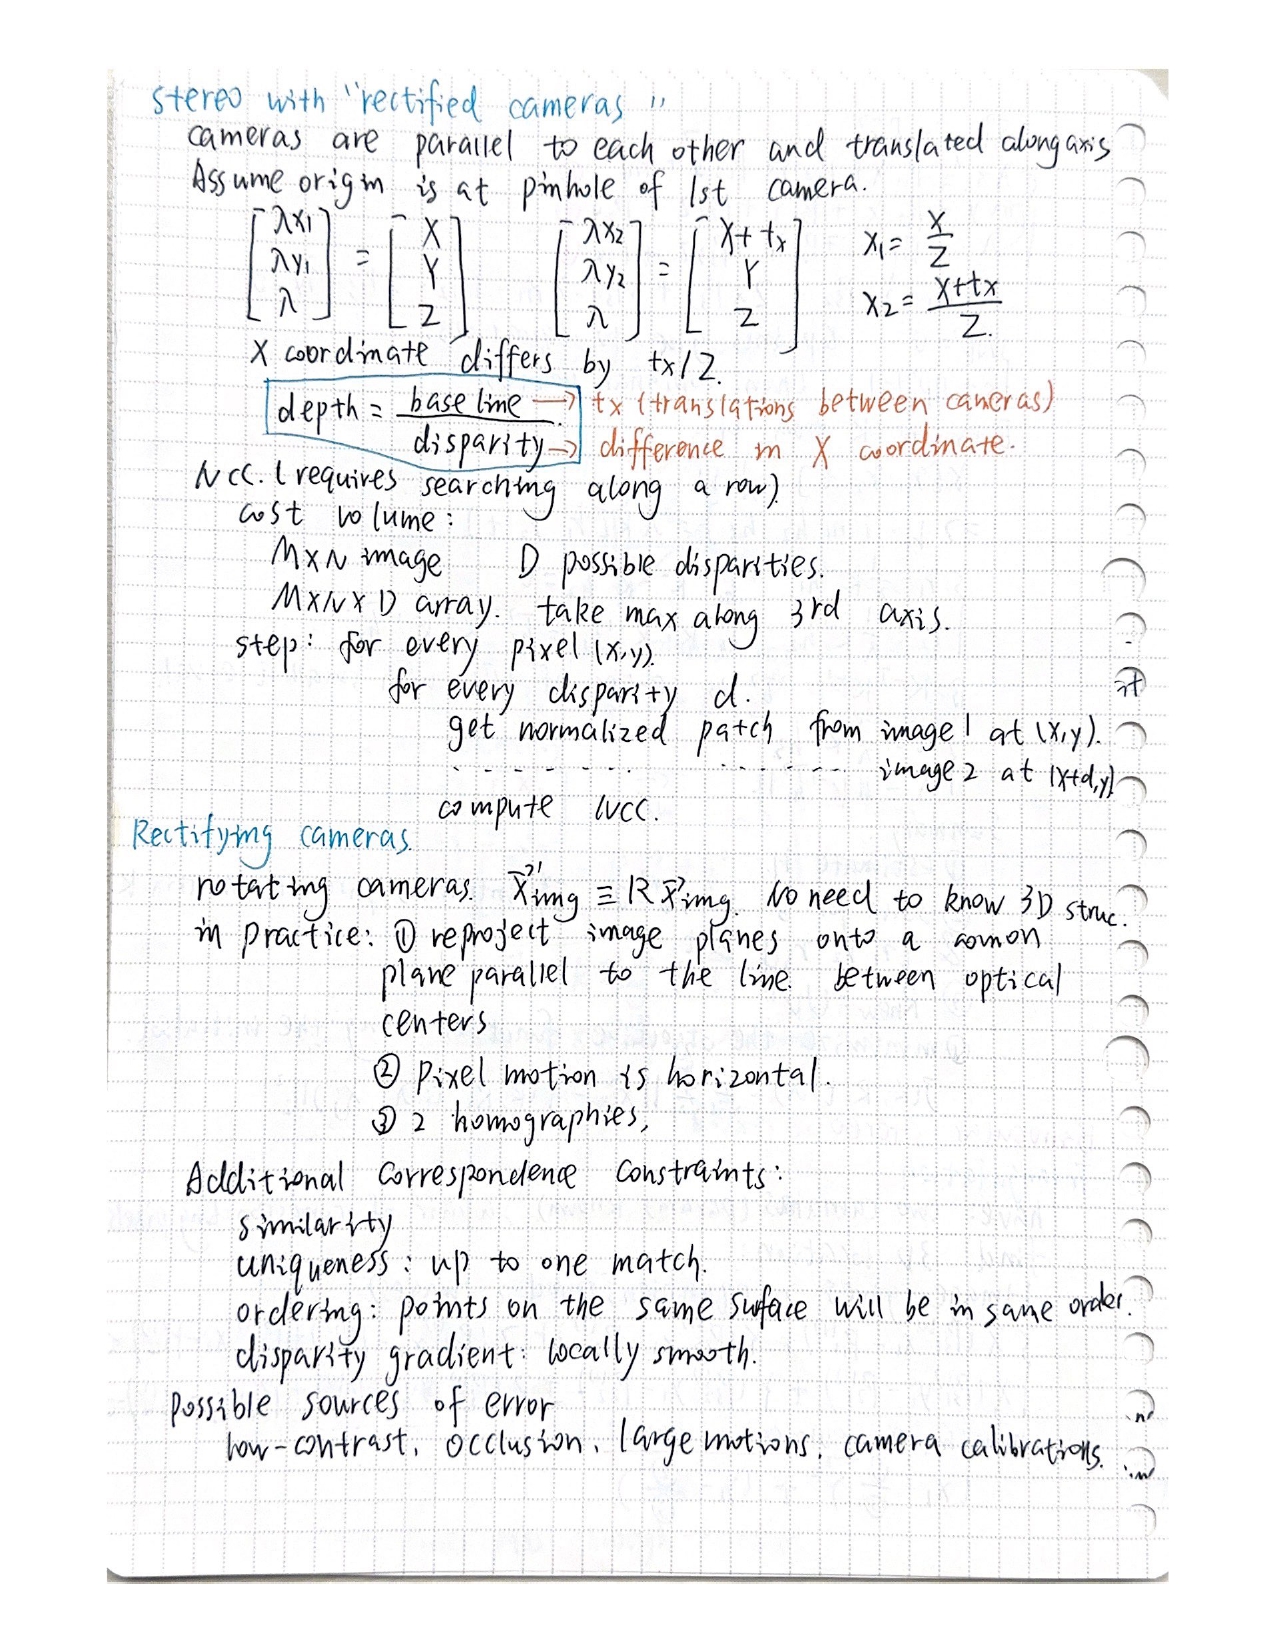 stereo with "rectified cameras"
cameras are parallel to each other and translated along axis
Assume origin is at pinhole of 1st camera.
[λx1 λy1 λ] = [X Y Z] [λx2 λy2 λ] = [X+tx Y Z] x1 = X/Z
x2 = X+tx/Z.
X coordinate differs by tx/Z.
depth = baseline/disparity → tx (translations between cameras)
→ difference in X coordinate.
NCC. (requires searching along a row)
cost volume:
MxN image D possible disparities.
MxNxD array. take max along 3rd axis.
step: for every pixel (x,y).
for every disparity d.
get normalized patch from image 1 at (x,y).
- - - - - - - - - - - - - image 2 at (x+d,y)
compute NCC.
Rectifying cameras.
rotating cameras. x⃗'img ≡ R x⃗img. No need to know 3D struc.
in practice: ① reproject image planes onto a comon
plane parallel to the line between optical
centers
② pixel motion is horizontal.
③ 2 homographies,
Additional Correspondence Constraints:
similarity
uniqueness: up to one match.
ordering: points on the same surface will be in same order.
disparity gradient: locally smooth.
Possible sources of error
low-contrast, occlusion, large motions, camera calibrations.